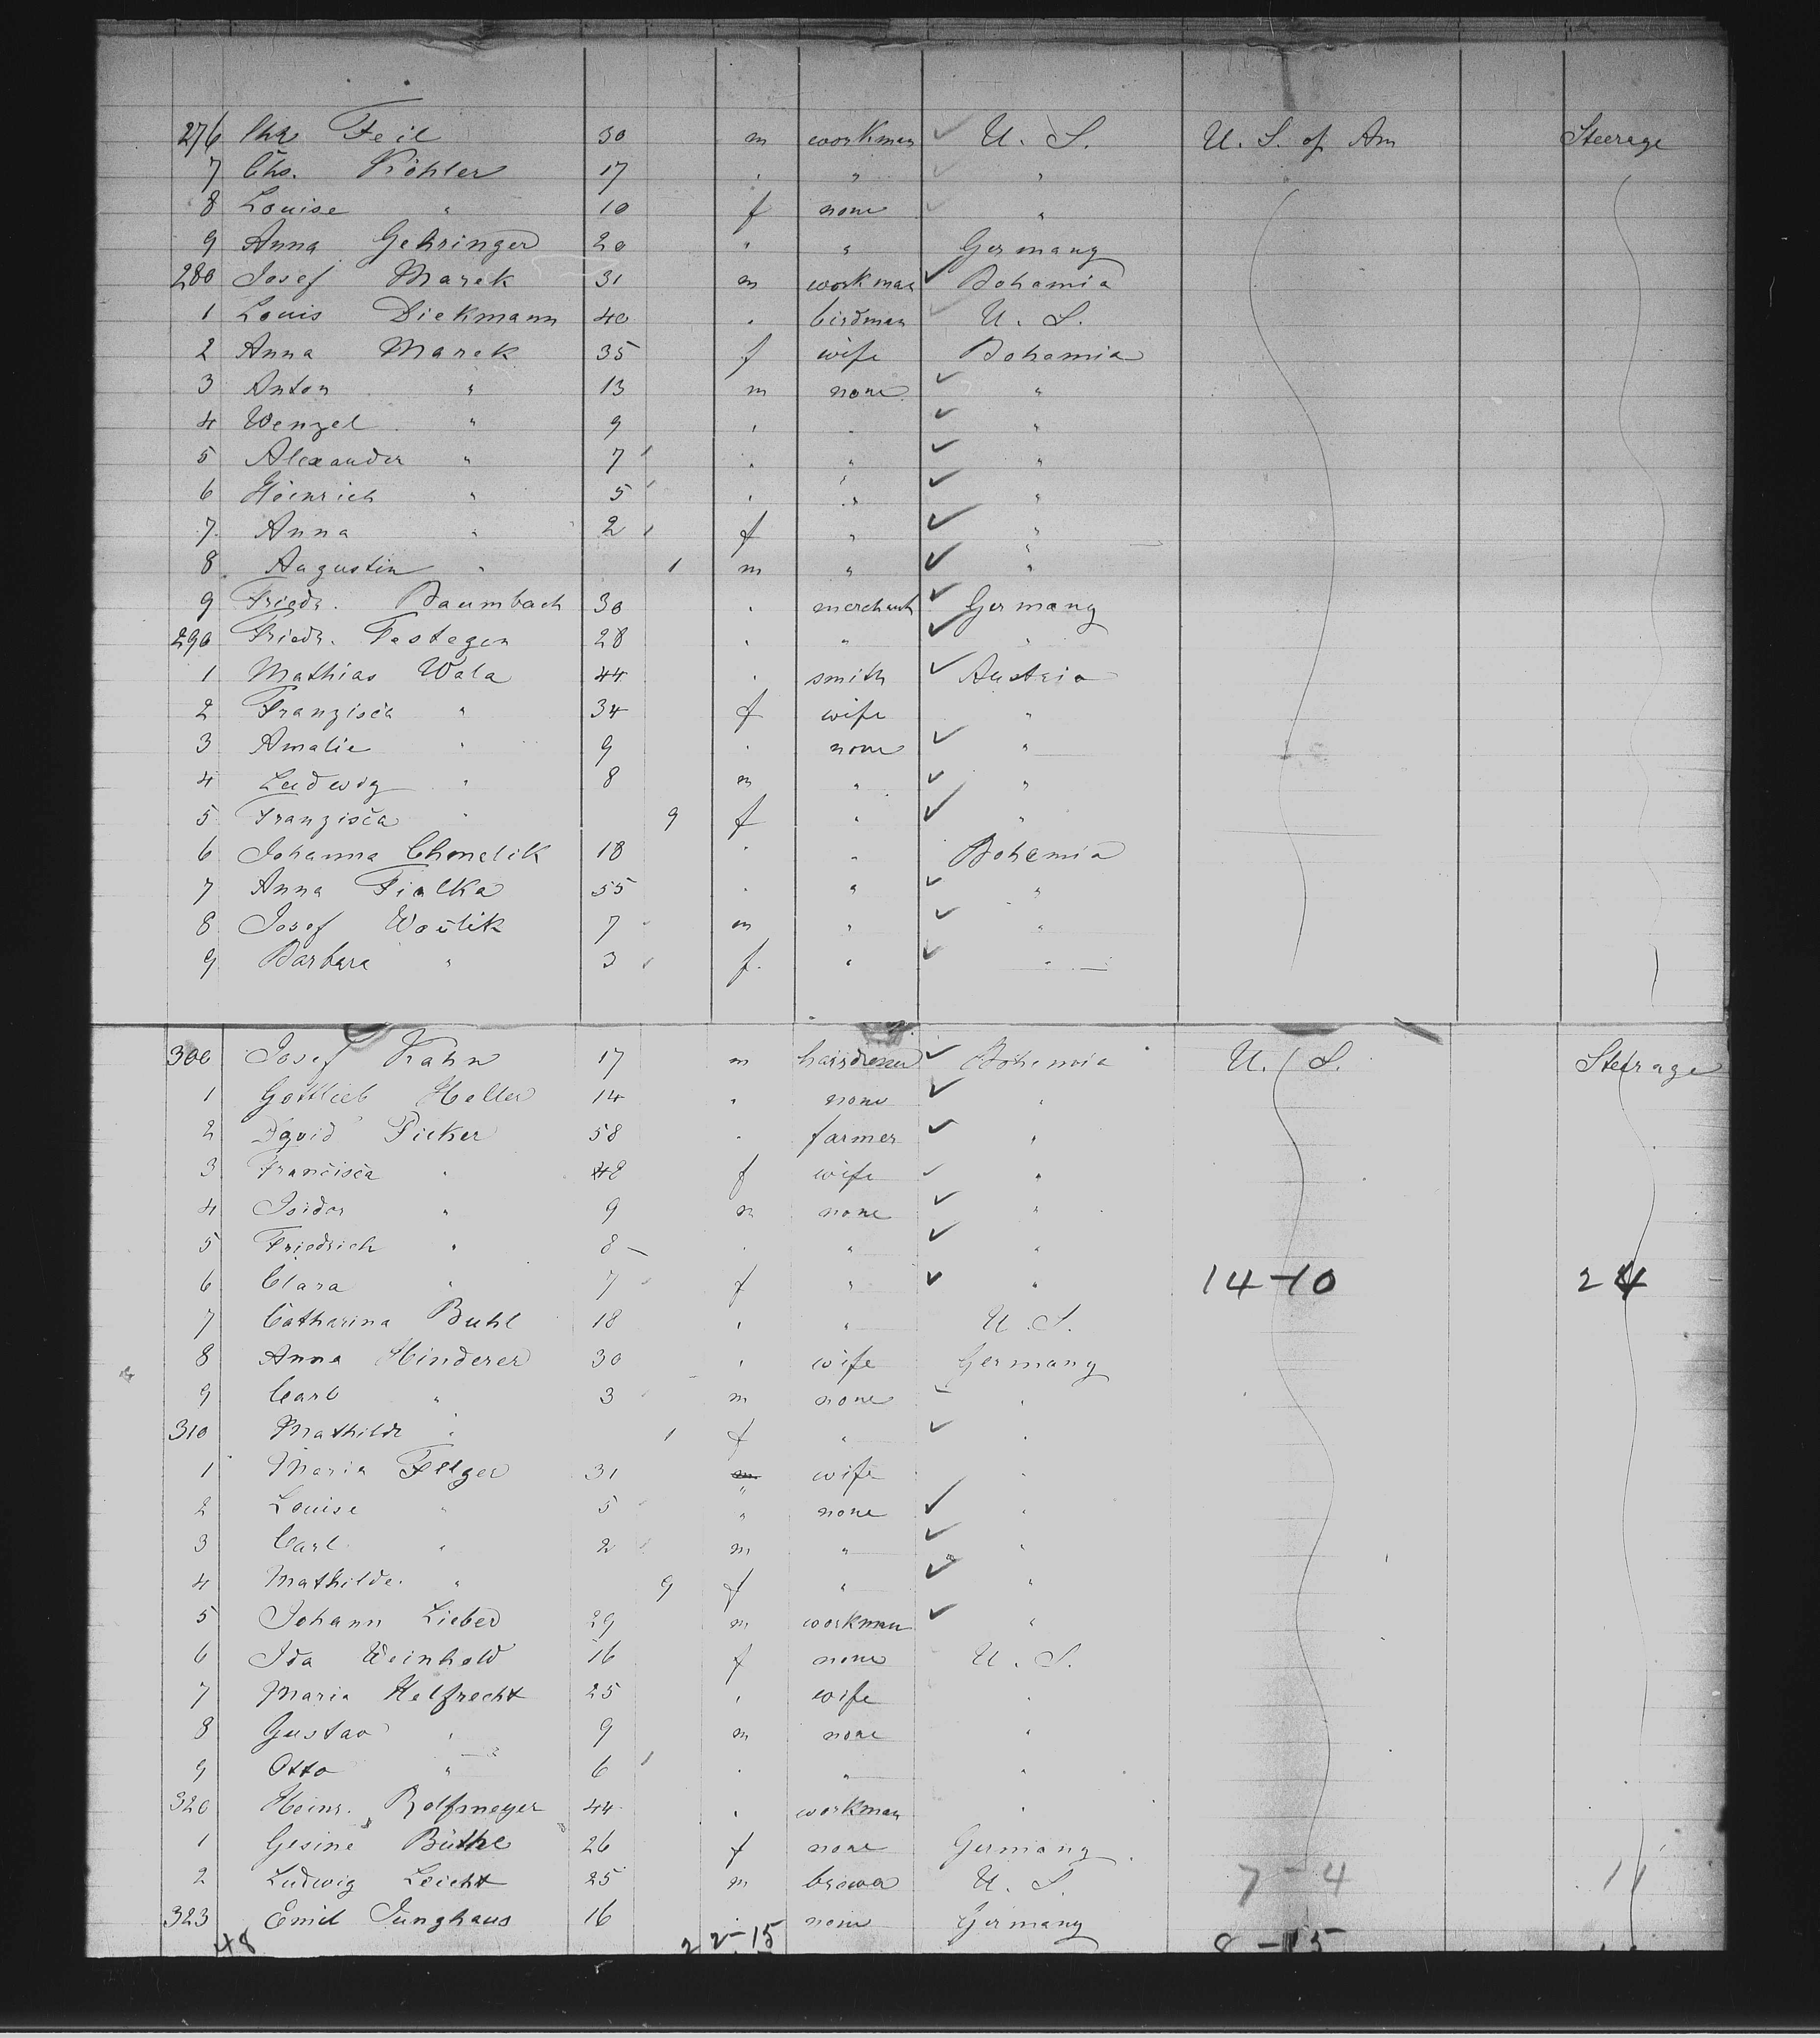 276 Chr Feil 30 m workman ✓ U. S. U. S. of Am Steerage
7 Chs. Köhler 17 " " ✓ "
8 Louise " 10 f none ✓ "
9 Anna Gehringer 20 " " Germany
280 Josef Marek 31 m workman ✓ Bohemia
1 Louis Diekmann 40 " birdman ✓ U. S.
2 Anna Marek 35 f wife Bohemia
3 Anton " 13 m none ✓ "
4 Wenzel " 9 " " ✓ "
5 Alexander " 7 " " ✓ "
6 Heinrich " 5 " " ✓ "
7 Anna " 2 f " ✓ "
8 Augustin " 1 m " ✓ "
9 Friedr. Baumbach 30 " merchant ✓ Germany
290 Friedr. Fastagen 28 " " ✓ "
1 Mathias Wala 44 " smith ✓ Austria
2 Franzisca " 34 f wife "
3 Amalie " 9 " none ✓ "
4 Ludwig " 8 m " ✓ "
5 Franzisca " 9 f " ✓ "
6 Johanna Chmelik 18 " " Bohemia
7 Anna Fialka 55 " " ✓ "
8 Josef Woŭlik 7 m " ✓ "
9 Barbara " 3 f. " ✓ "
300 Josef Krahn 17 m hairdresser ✓ Bohemia U. S. Steerage
1 Gottlieb Heller 14 " none ✓ "
2 David Picker 58 " farmer ✓ "
3 Francisca " 48 f wife ✓ "
4 Isidor " 9 m none ✓ "
5 Friedrich " 8 " " ✓ "
6 Clara " 7 f " ✓ " 14-10 24
7 Catharina Buhl 18 " " U. S.
8 Anna Hinderer 30 " wife Germany
9 Carl " 3 m none ✓ "
310 Mathilde " 1 f " ✓ "
1 Maria Filger 31 " wife "
2 Louise " 5 " none ✓ "
3 Carl " 2 m " ✓ "
4 Mathilde " 9 f " ✓ "
5 Johann Lieber 29 m workman ✓ "
6 Ida Weinhold 16 f none U. S.
7 Maria Helfrecht 25 " wife "
8 Gustav " 9 m none "
9 Otto " 6 " " "
320 Heinr. Rolfmeyer 44 " workman "
1 Gesine Büthe 26 f none Germany
2 Ludwig Leicht 25 m brewer U. S. 7-4 11
323 Emil Junghaus 16 " none Germany
48 22-15 8-15